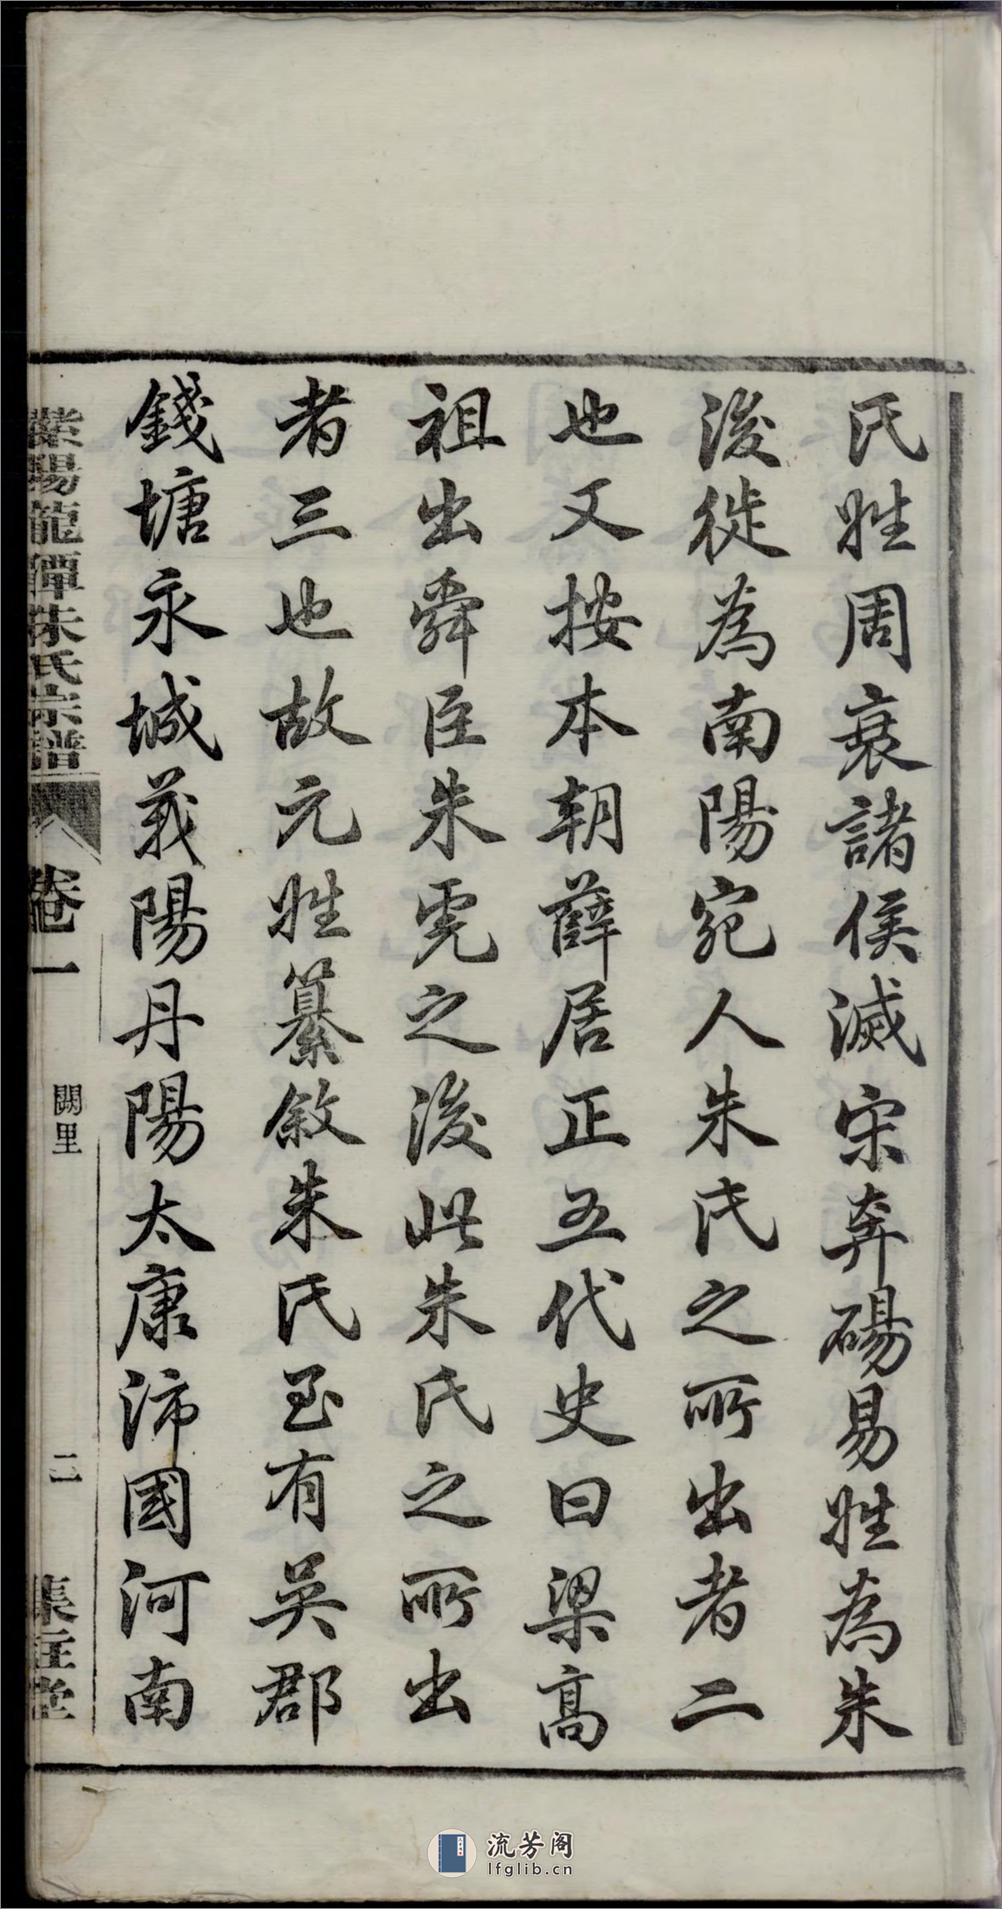 氏姓周衰諸侯滅宋奔碭易姓為朱
後徙為南陽宛人朱氏之所出者二
也又按本朝薛居正五代史曰梁高
祖出舜臣朱虎之後此朱氏之所出
者三也故元姓纂敘朱氏至有吳郡
錢塘永城義陽丹陽太康沛國河南
紫陽龍潭朱氏宗譜
卷一
闕里
二
集註堂
流芳阁
lfglib.cn